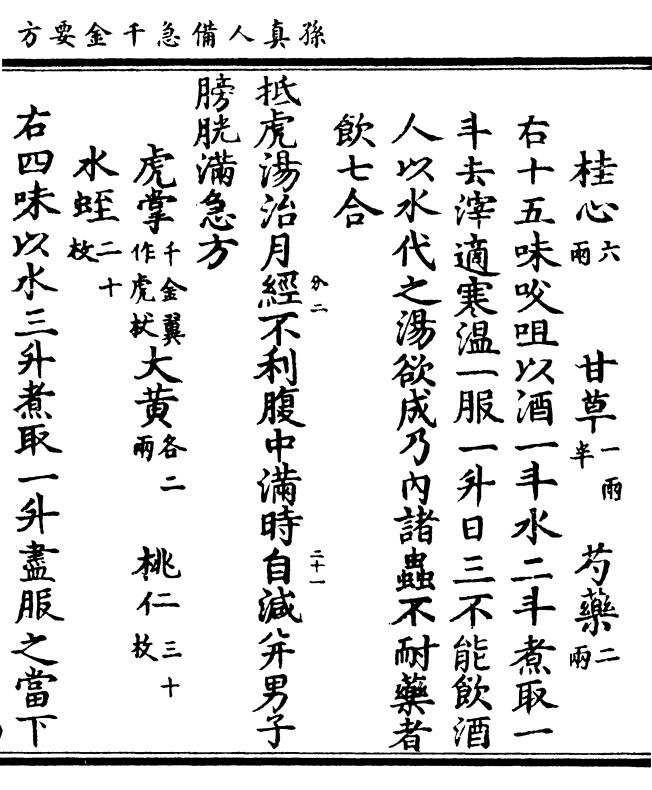 孫真人備急千金要方
桂心六兩 甘草一兩半 芍藥二兩
右十五味㕮咀以酒一斗水二斗煮取一
斗去滓適寒温一服一升日三不能飲酒
人以水代之湯欲成乃内諸蟲不耐藥者
飲七合
抵虎湯治月經不利腹中滿時自減并男子
膀胱滿急方
虎掌千金翼作虎杖 大黃各二兩 桃仁三十枚
水蛭二十枚
右四味以水三升煮取一升盡服之當下
分二
二十一